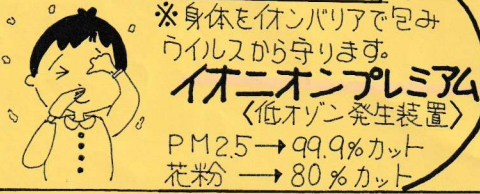 ※身体をイオンバリアで包み
ウイルスから守ります。
イオニオンプレミアム
〈低オゾン発生装置〉
PM2.5→99.9%カット
花粉→80%カット